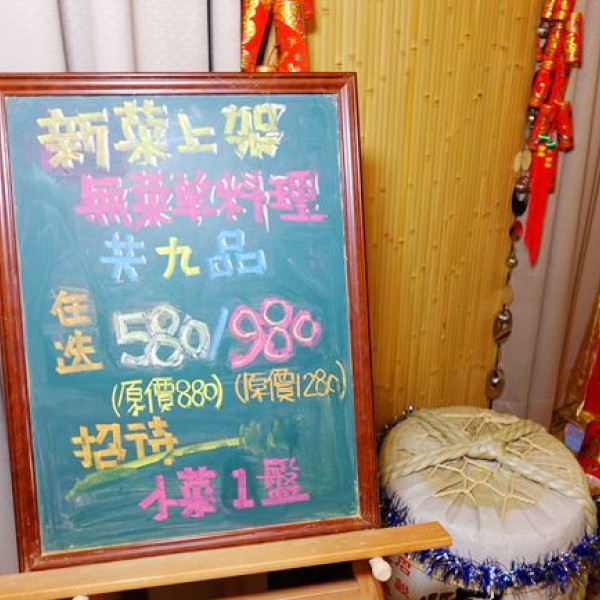 新菜上架
無菜单料理
共九品
任选 580/980
(原價880) (原價1280)
招待
小菜1盤